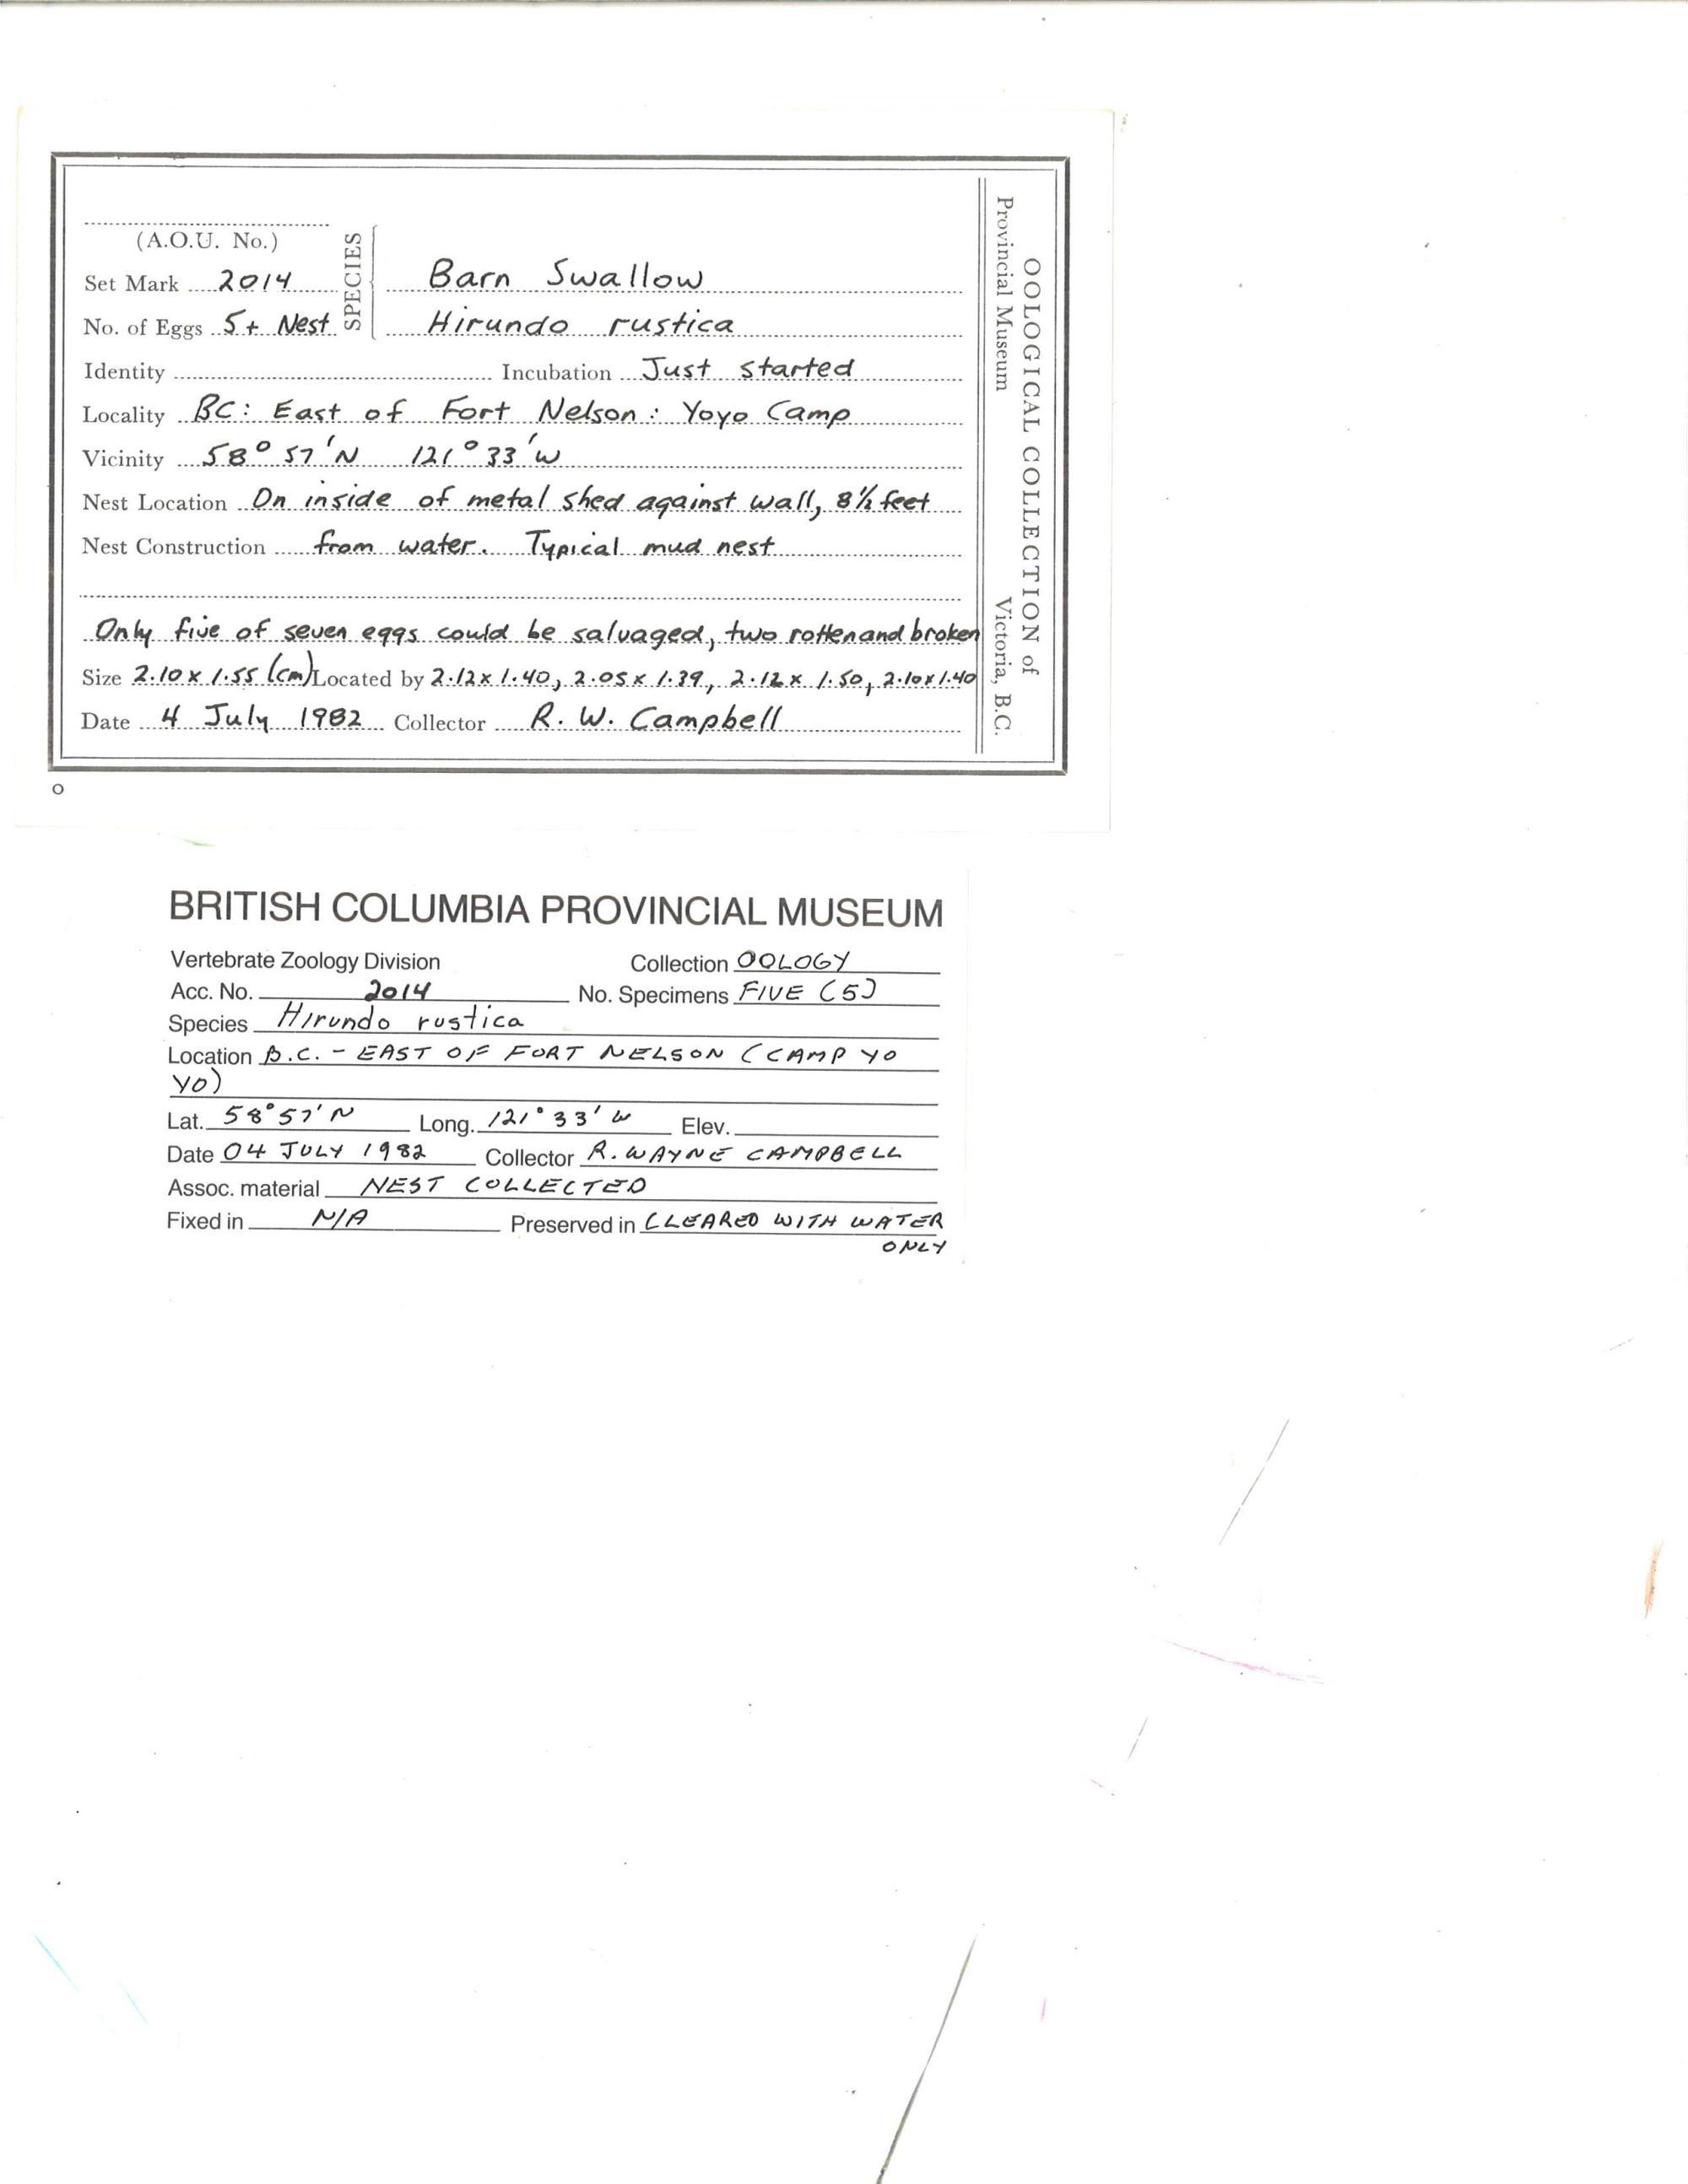 (A.O.U. No.)
SPECIES
Set Mark 2014 Barn Swallow
No. of Eggs 5+ Nest Hirundo rustica
Identity Incubation Just started
Locality BC: East of Fort Nelson: Yoyo Camp
Vicinity 58° 57'N 121° 33'W
Nest Location On inside of metal shed against wall, 8½ feet
Nest Construction from water. Typical mud nest
Only five of seven eggs could be salvaged, two rotten and broken
Size 2.10 x 1.55 (cm) Located by 2.12 x 1.40, 2.05 x 1.39, 2.12 x 1.50, 2.10 x 1.40
Date 4 July 1982 Collector R. W. Campbell
OOLOGICAL COLLECTION of
Provincial Museum Victoria, B.C.
BRITISH COLUMBIA PROVINCIAL MUSEUM
Vertebrate Zoology Division Collection OOLOGY
Acc. No. 2014 No. Specimens FIVE (5)
Species Hirundo rustica
Location B.C. - EAST OF FORT NELSON (CAMP YO
YO)
Lat. 58°57'N Long. 121°33'W Elev.
Date 04 JULY 1982 Collector R. WAYNE CAMPBELL
Assoc. material NEST COLLECTED
Fixed in N/A Preserved in CLEARED WITH WATER
ONLY